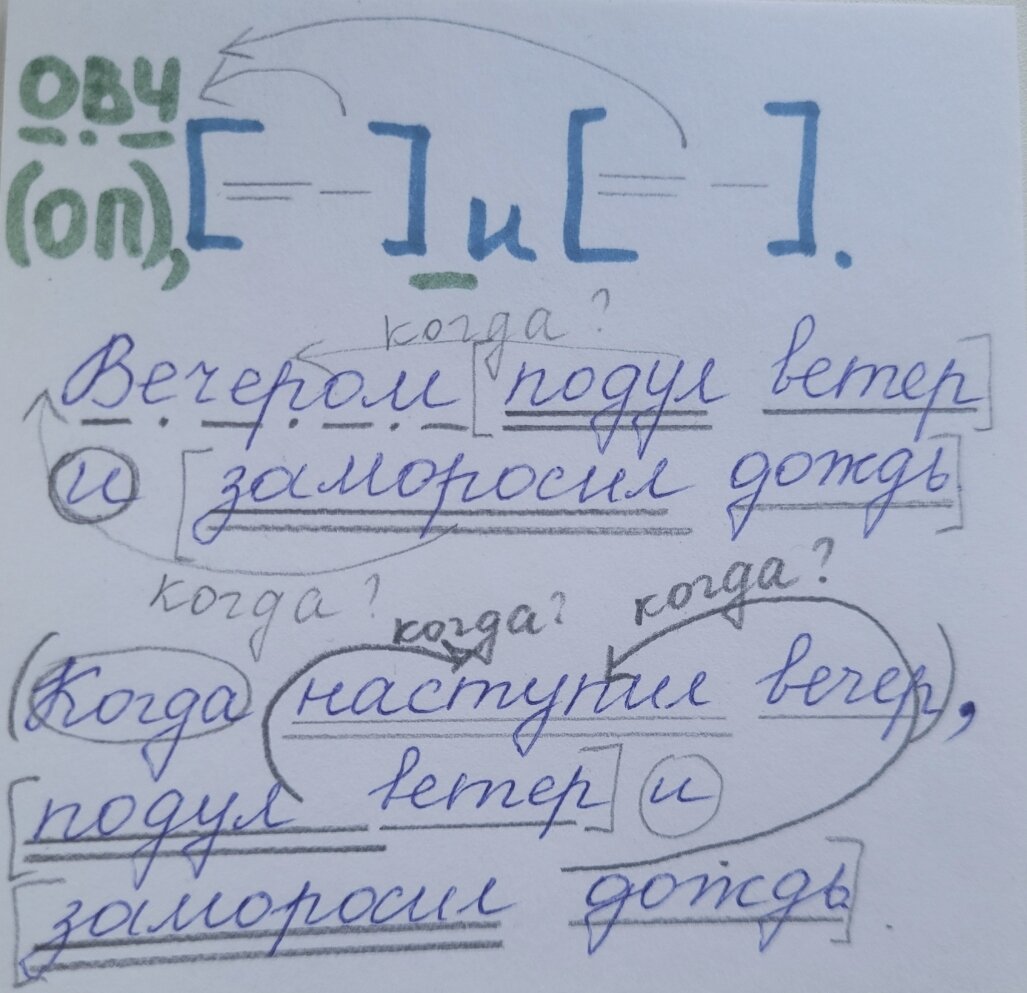 ОВЧ
(ОП), [ = – ] и [ = – ].
когда?
Вечером [подул ветер]
и [заморосил дождь]
когда?
когда? когда?
(Когда наступил вечер),
[подул ветер] и
[заморосил дождь].